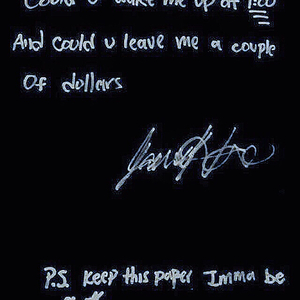 Could u wake me up at 1:00
And could u leave me a couple
Of dollars
P.S. keep this paper Imma be